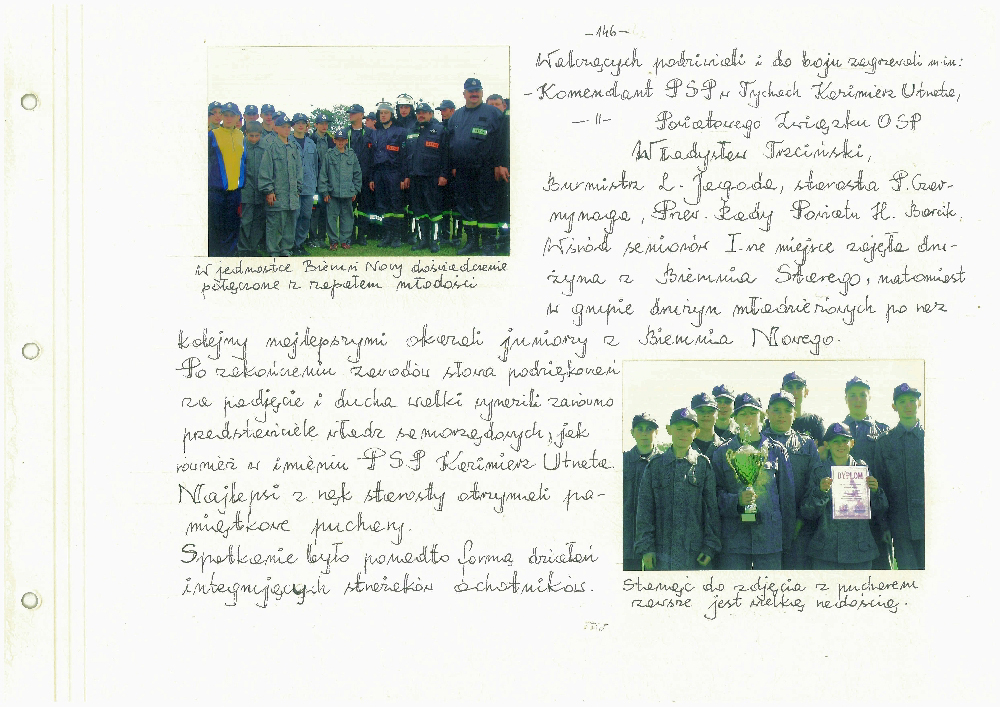 -146-
Walczących podziwiali i do boju zagrzewali m.in:
- Komendant PSP w Tychach Kazimierz Utrata,
- 11- Powiatowego Związku OSP
Władysław Trzciński,
Burmistrz L. Jagoda, starosta P. Czar-
nynaga, Przew. Rady Powiatu H. Barcik.
Wśród seniorów I-ne miejsce zajęła dru-
żyna z Bierunia Starego, natomiast
w grupie drużyn młodzieżowych po raz
kolejny najlepszymi okazali juniorzy z Bierunia Nowego.
W jednostce Bieruń Nowy doświadczenie
połączone z zapałem młodości
Po zakończeniu zawodów słowa podziękowań
za podjęcie i ducha walki wyrazili zarówno
przedstawiciele władz samorządowych, jak
również w imieniu PSP Kazimierz Utrata.
Najlepsi z rąk starosty otrzymali pa-
miątkowe puchary.
Spotkanie było ponadto formą działań
integrujących strażaków ochotników.
DYPLOM
Stanąć do zdjęcia z pucharem
zawsze jest wielką radością.